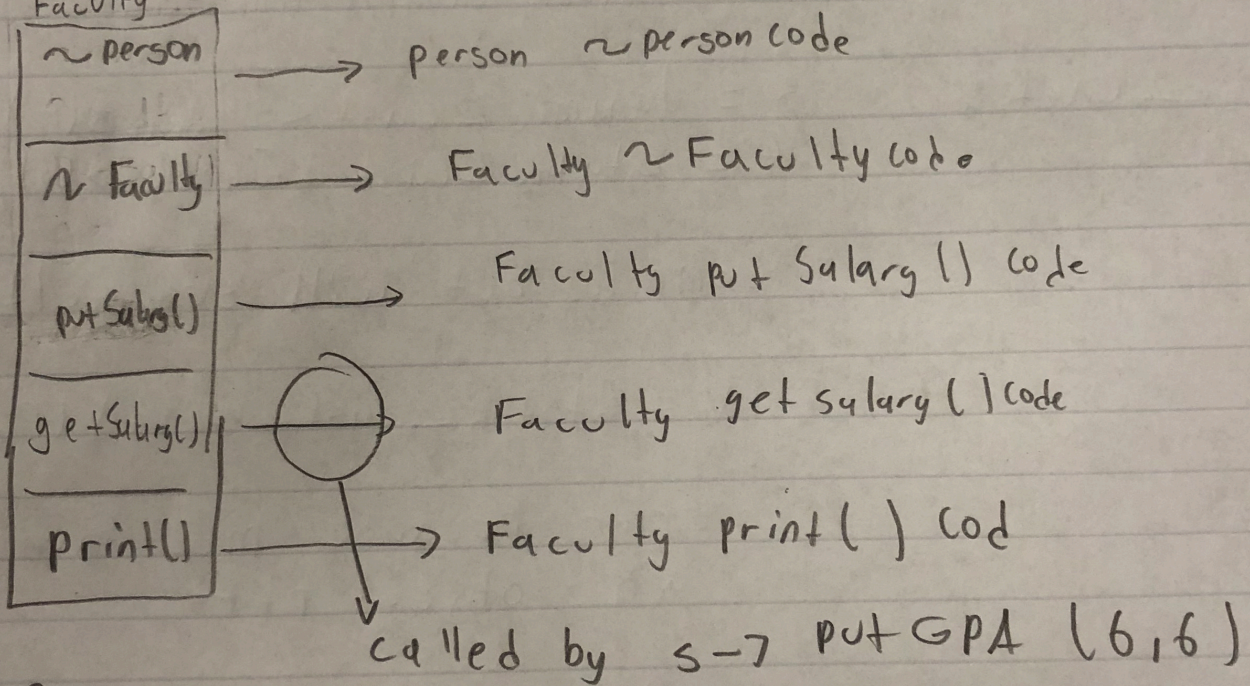 Faculty
~ person → person ~ person code
~ Faculty → Faculty ~ Faculty code
putSalary() → Faculty put Salary () code
getSalary() → Faculty get salary () code
print() → Faculty print() cod
called by s -> put GPA (6,6)